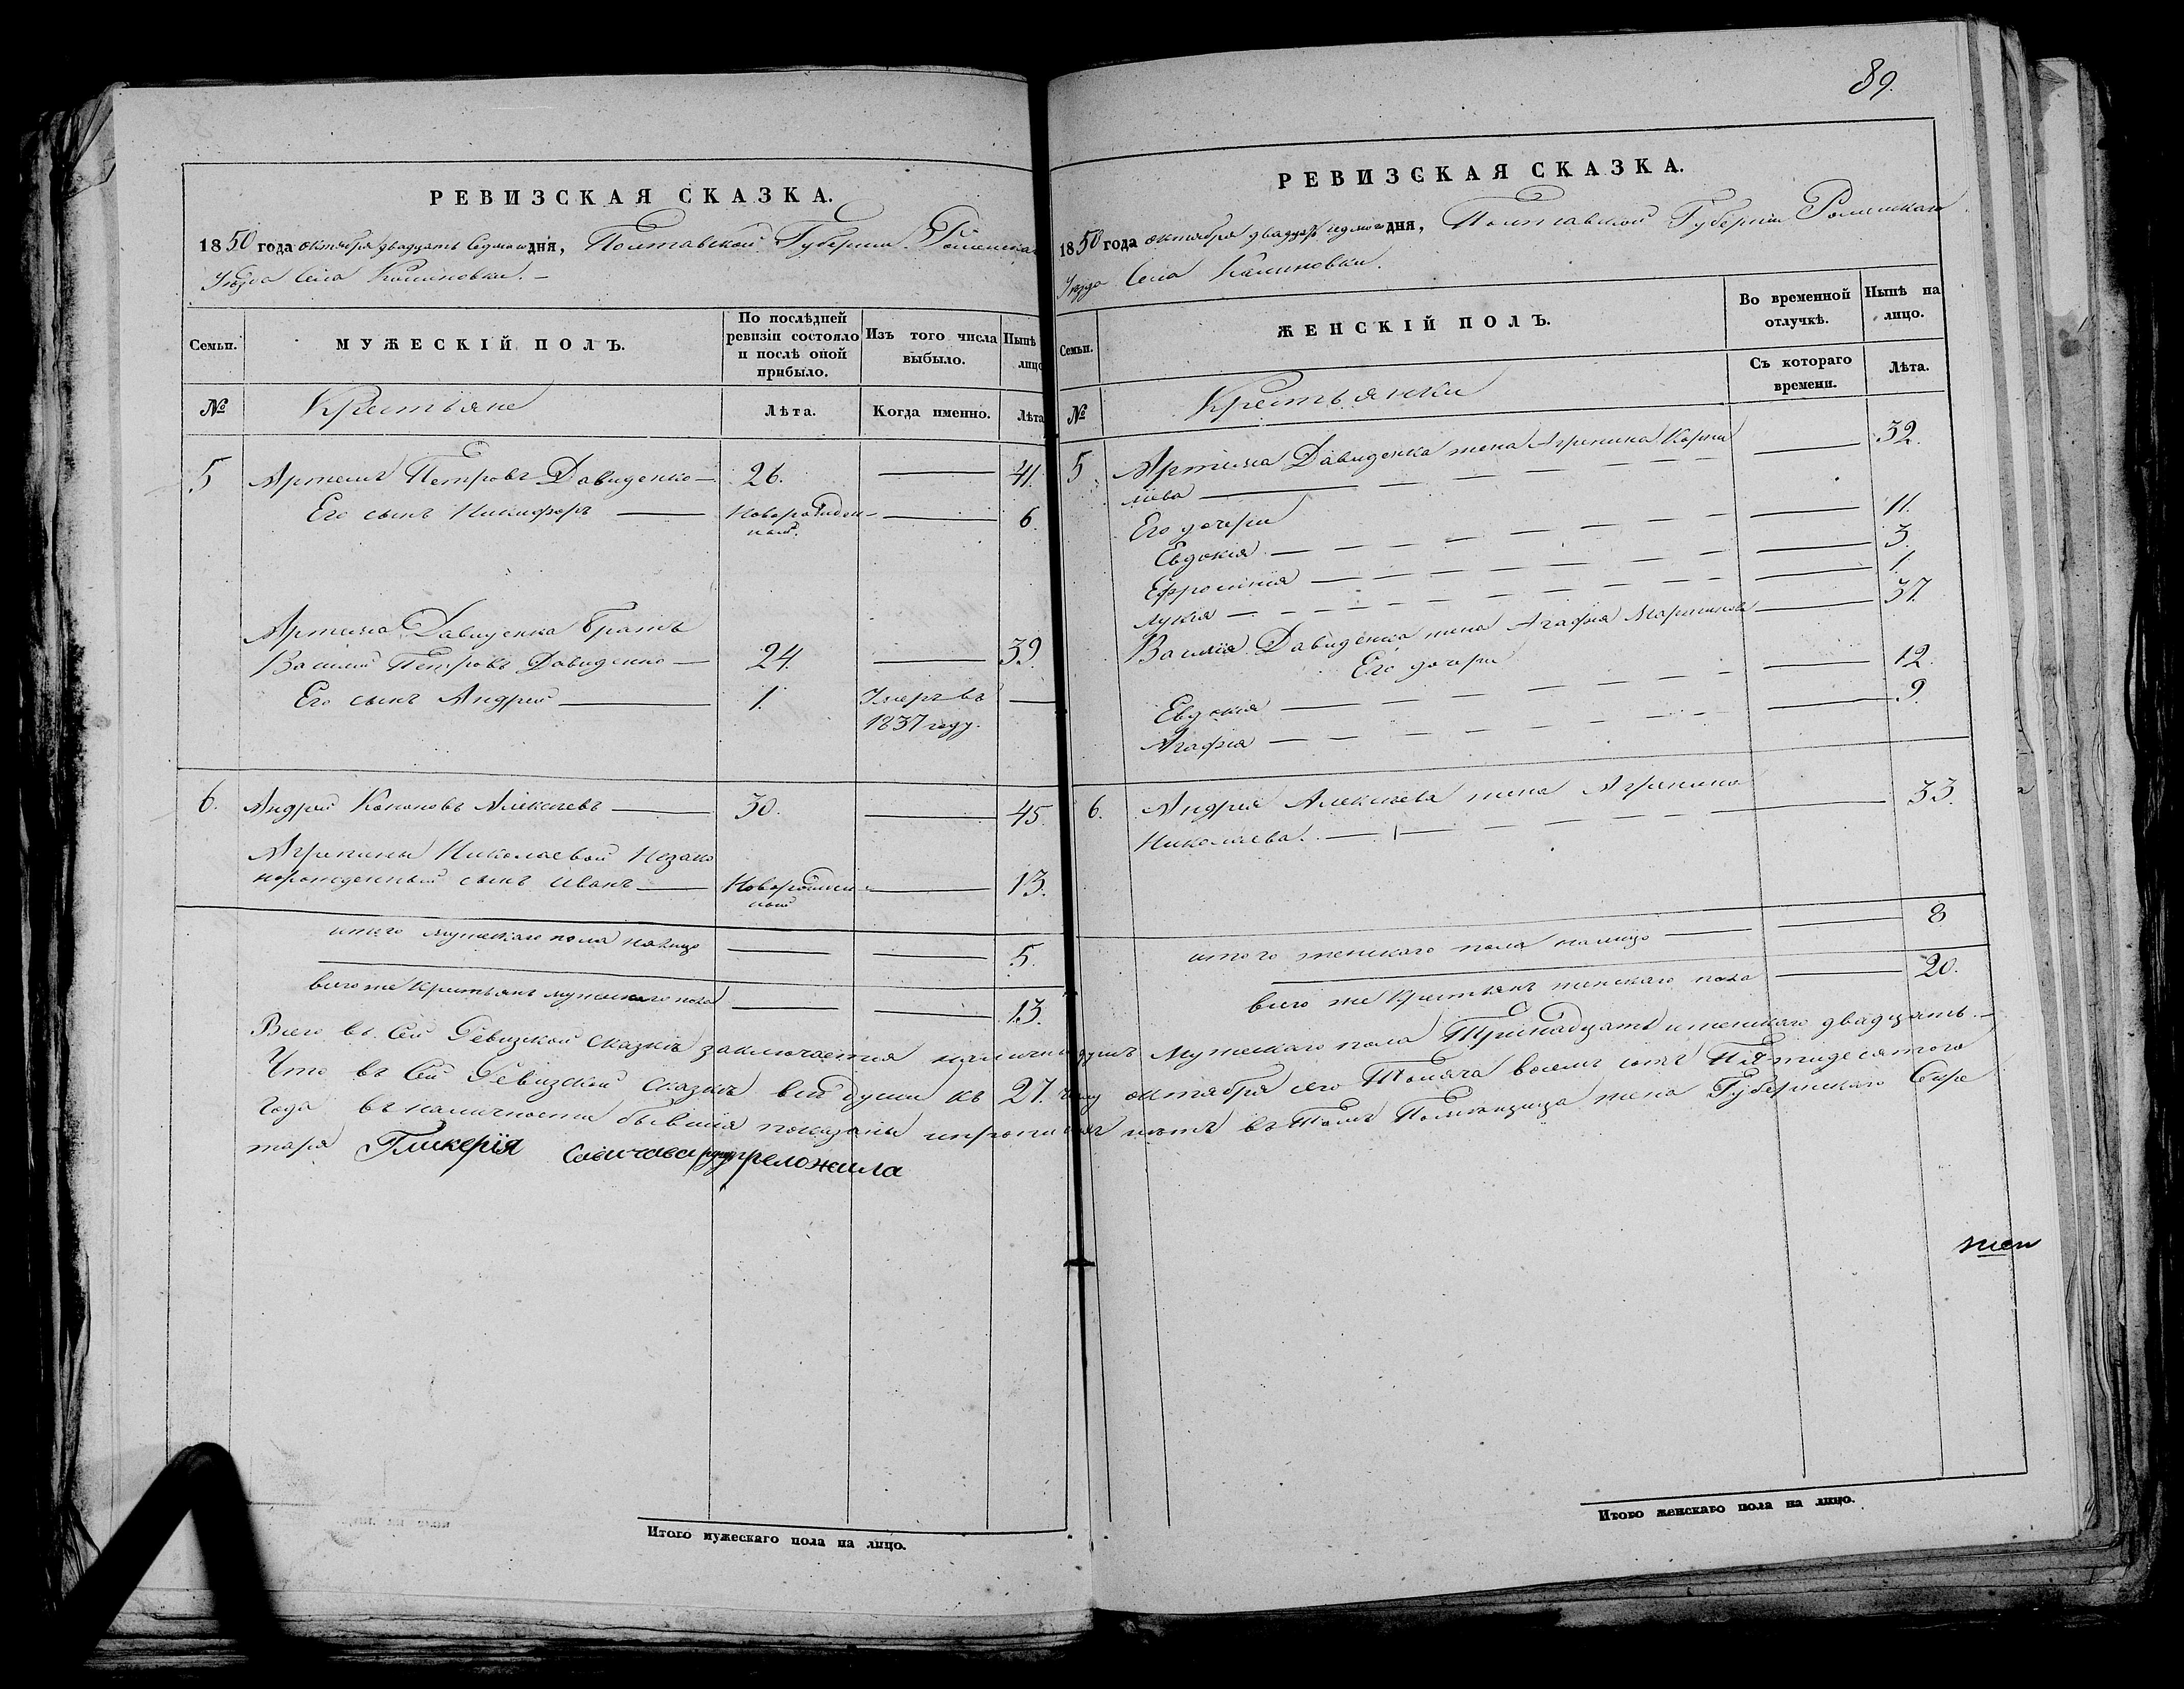 РЕВИЗСКАЯ СКАЗКА.
1850 года октября двадцать седмого дня, Полтавской Губернии Роменскаго
Уезда Села Калиновки. –
Семьи.
МУЖЕСКІЙ ПОЛЪ.
По послѣдней ревизіи состояло и послѣ оной прибыло.
Изъ того числа выбыло.
Нынѣ лицо
№
Крестьяне
Лѣта.
Когда именно.
Лѣта
5 Артемъ Петровъ Давиденко — 26. — 41.
Его сынъ Никифоръ — Новорожден- — 6.
ный.
Артема Давиденка Братъ
Василий Петровъ Давиденко — 24. — 39.
Его сынъ Андрей — 1. Умеръ въ —
1837 году.
6. Андрей Кононовъ Алексеевъ — 30. — 45.
Агрипины Николаевой Незако
норожденный сынъ Иванъ — Новорожден- — 13.
ный
итого мужескаго пола налицо — — 5.
всего же Крестьянъ мужескаго пола — — 13.
89.
РЕВИЗСКАЯ СКАЗКА.
1850 года октября двадцать седмого дня, Полтавской Губернии Роменскаго
Уезда Села Калиновки.
Семьи.
ЖЕНСКІЙ ПОЛЪ.
Во временной отлучкѣ.
Нынѣ на лицо.
№
Крестьянки
Съ котораго времени.
Лѣта.
5 Артема Давиденка жена Агрипина Корни — 32.
лиева —
Его дочери
Евдокия — — 11.
Ефросиния — — 3.
Лукия — — 1.
Василия Давиденка жена Агафия Мартинова — 37.
Его дочери
Евдокия — — 12.
Агафия — — 9.
6. Андрея Алексеева жена Агрипина — 33.
Николаева. —
итого женскаго пола налицо — 8
всего же Крестьянъ женскаго пола — 20.
Всего въ Сей Ревизской Сказкѣ заключается наличныхъ душъ мужескаго пола Тринадцать и женскаго двадцать. –
Что въ Сей Ревизской Сказкѣ все души къ 27. му октября сего Тысяча восемь сотъ Пятидесятого
Года въ наличности бывшия показаны и прописныхъ нетъ въ томъ Помещица жена Губернскаго Секре
таря Гликерія руку преложила
Итого мужескаго пола на лицо.
Итого женскаго пола на лицо.